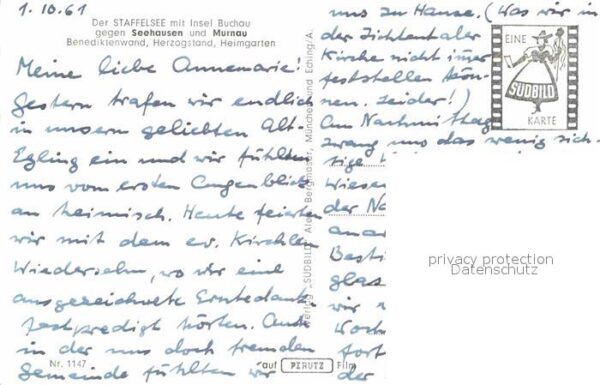 1.10.61
Der STAFFELSEE mit Insel Buchau
gegen Seehausen und Murnau
Benediktenwand, Herzogstand, Heimgarten
Meine liebe Annemarie!
Gestern trafen wir endlich
in unserm geliebten Alt-
Egling ein und wir fühlten
uns vom ersten Augenblick
an heimisch. Heute feierten
wir mit dem ev. Kirchlein
Wiedersehn, wo wir eine
ausgezeichnete Erntedank-
festpredigt hörten. Auch
in der uns doch fremden
Gemeinde fühlten wir
Nr. 1147
Verlag „SÜDBILD“ Alex Bergmoser, München und Eching/A.
auf PERUTZ Film
uns zu Hause. (Was wir in
der Lichtental aler
Kirche nicht immer
feststellen kön-
nen. Leider!)
Am Nachmittag
zwang uns das wenig sich-
tige
Wiesen
der Na
anar
Besti
glas
wir
Woch
fort
der
EINE
SÜDBILD
KARTE
privacy protection
Datenschutz